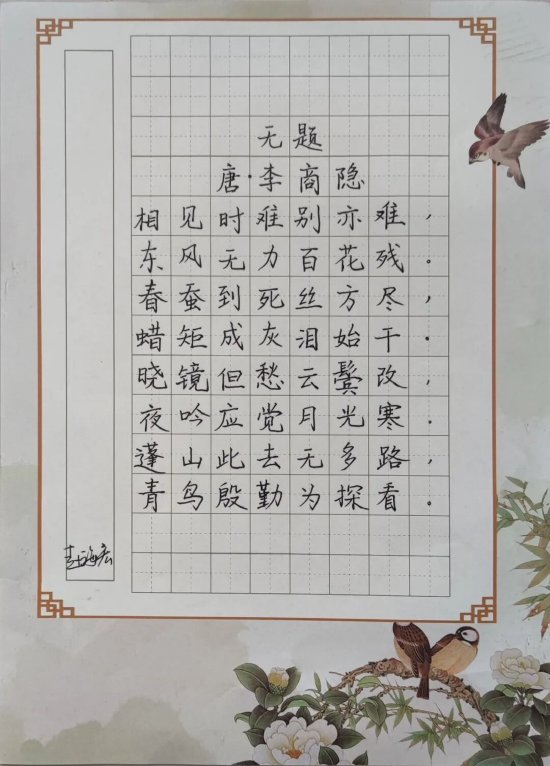 无题
唐·李商隐
相见时难别亦难，
东风无力百花残。
春蚕到死丝方尽，
蜡矩成灰泪始干.
晓镜但愁云鬓改，
夜吟应觉月光寒.
蓬山此去无多路，
青鸟殷勤为探看。